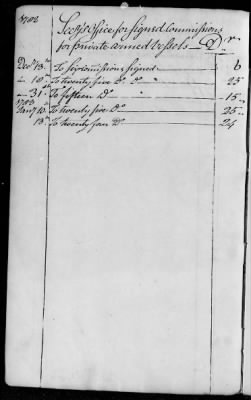 1782
Secy's Office for signed Commissions
for private armed Vessels Dr
Decr 13th To six Commissions signed 6
" 10th To twenty five Do Do " 25
" 31st To fifteen Do " 15
1783
Jany 10 To twenty five Do 25
13th To twenty four Do 24